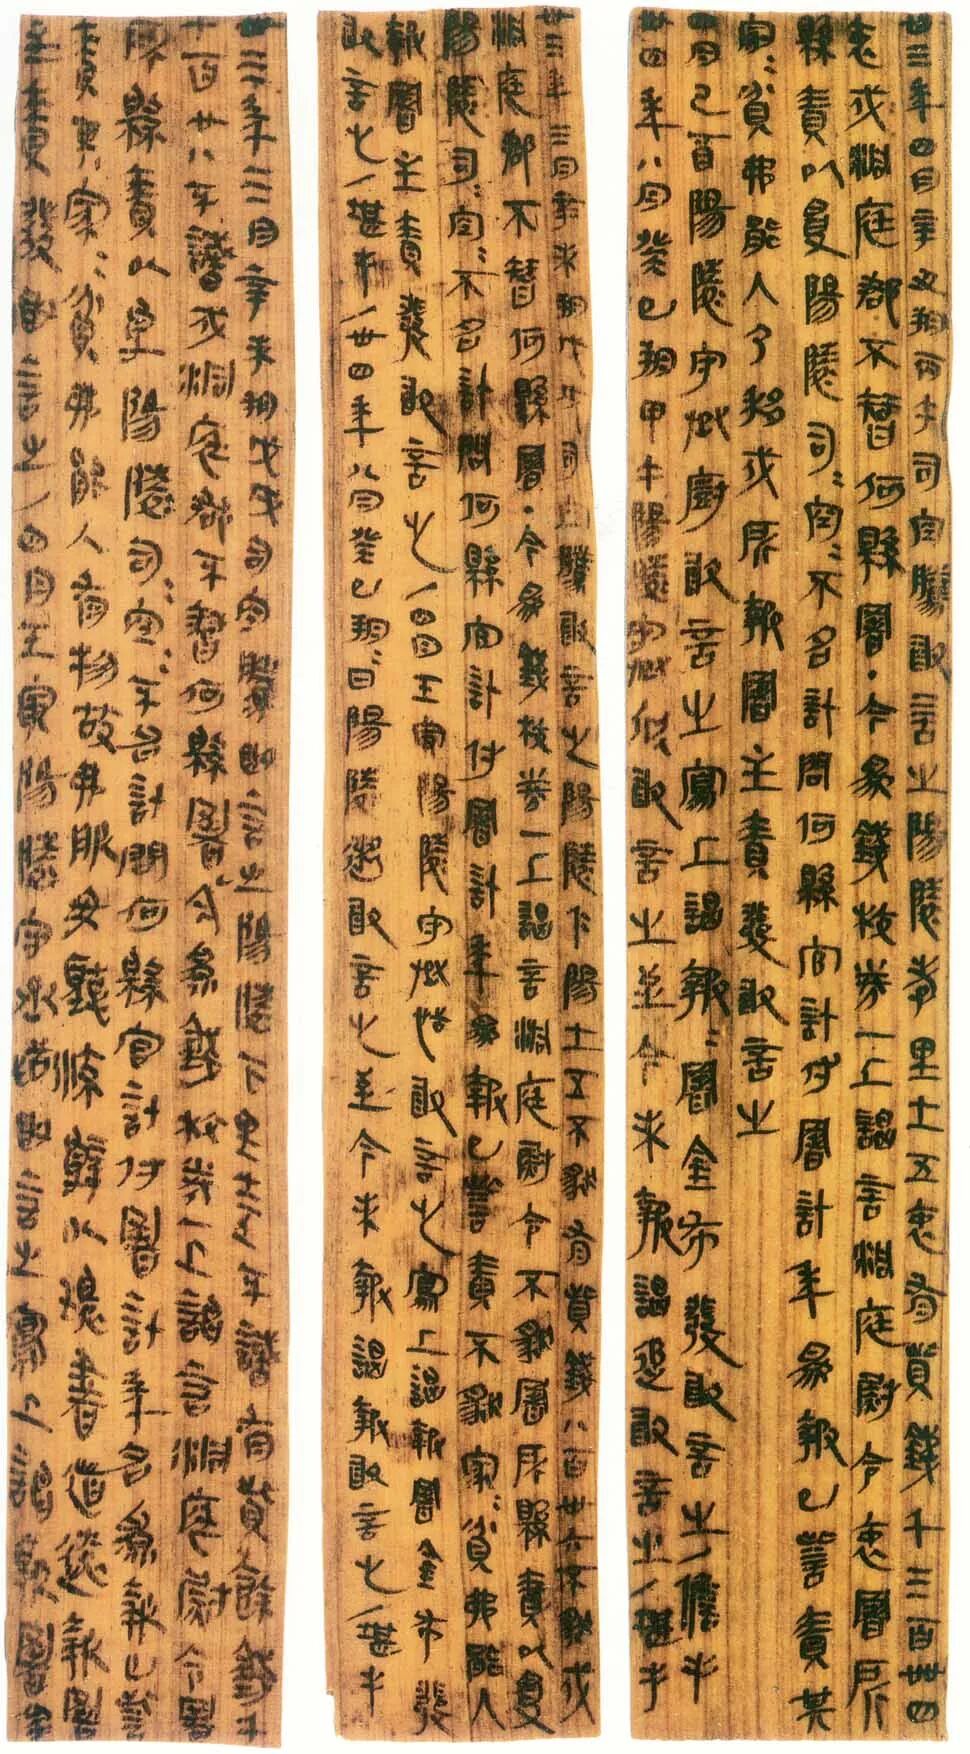 卅三年四月辛丑朔丙午司空騰敢言之陽陵孝里士五衷有貲錢千三百卌四
衷戍洞庭郡不智何縣署·今為錢校券一上謁言洞庭尉令衷署所
縣責以受陽陵司=空=不名計問何縣官計付署計年為報已訾責其
家=貧弗能入乃移戍所報署主責發敢言之
四月己酉陽陵守丞廚敢言之寫上謁報=署金布發敢言之/儋手
卅四年八月癸巳朔甲午陽陵守丞欣敢言之至今未報謁追敢言之/堪手
卅三年三月辛未朔戊戌司空騰敢言之陽陵仁陽士五不豤有貲錢八百卅六不豤戍
洞庭郡不智何縣署·今為錢校券一上謁言洞庭尉令不豤署所縣責以受
陽陵司=空=不名計問何縣官計付署計年為報已訾責不豤家=貧弗能入
報署主責發敢言之/四月壬寅陽陵守丞恬敢言之寫上謁報署金布發
敢言之/堪手/卅四年八月癸巳朔=日陽陵遬敢言之至今未報謁報敢言之/堪手
卅三年三月辛未朔戊戌司空騰敢言之陽陵下里士五不識有貲餘錢千
七百廿八不識戍洞庭郡不智何縣署今為錢校券一上謁言洞庭尉令署
所縣責以受陽陵司=空=不名計問何縣官計付署計年名為報已訾
責其家=貧弗能入有物故弗服毋聽流辭以環書道遠報署
主責發敢言之/四月壬寅陽陵守丞恬敢言之寫上謁報署金